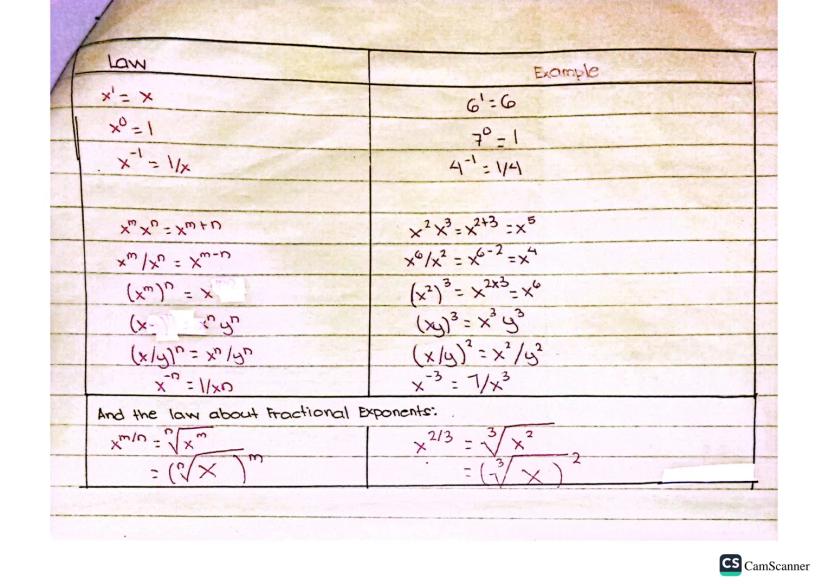 Law Example
x¹ = x 6¹ = 6
x⁰ = 1 7⁰ = 1
x⁻¹ = 1/x 4⁻¹ = 1/4
xᵐ xⁿ = xᵐ⁺ⁿ x² x³ = x²⁺³ = x⁵
xᵐ/xⁿ = xᵐ⁻ⁿ x⁶/x² = x⁶⁻² = x⁴
(xᵐ)ⁿ = x (x²)³ = x²ˣ³ = x⁶
(x ⁿ yⁿ (xy)³ = x³ y³
(x/y)ⁿ = xⁿ/yⁿ (x/y)² = x²/y²
x⁻ⁿ = 1/xn x⁻³ = 7/x³
And the law about Fractional Exponents:
xᵐ/ⁿ = ⁿ√xᵐ x²/³ = ³√x²
= (ⁿ√x)ᵐ = (³√x)²
CS CamScanner